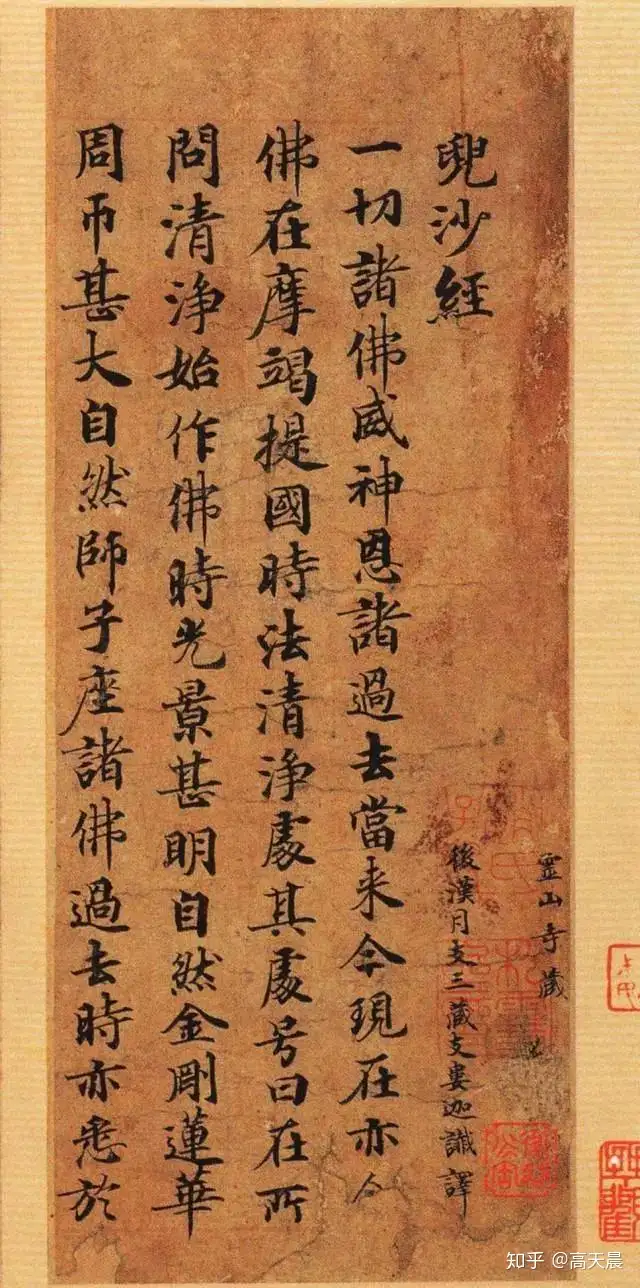 霊山寺藏
兜沙經 後漢月支三藏支婁迦讖譯
一切諸佛威神恩諸過去當来今現在亦尒
佛在摩竭提國時法清淨處其處号曰在所
問清淨始作佛時光景甚明自然金剛蓮華
周帀甚大自然師子座諸佛過去時亦悉於
知乎 @高天晨